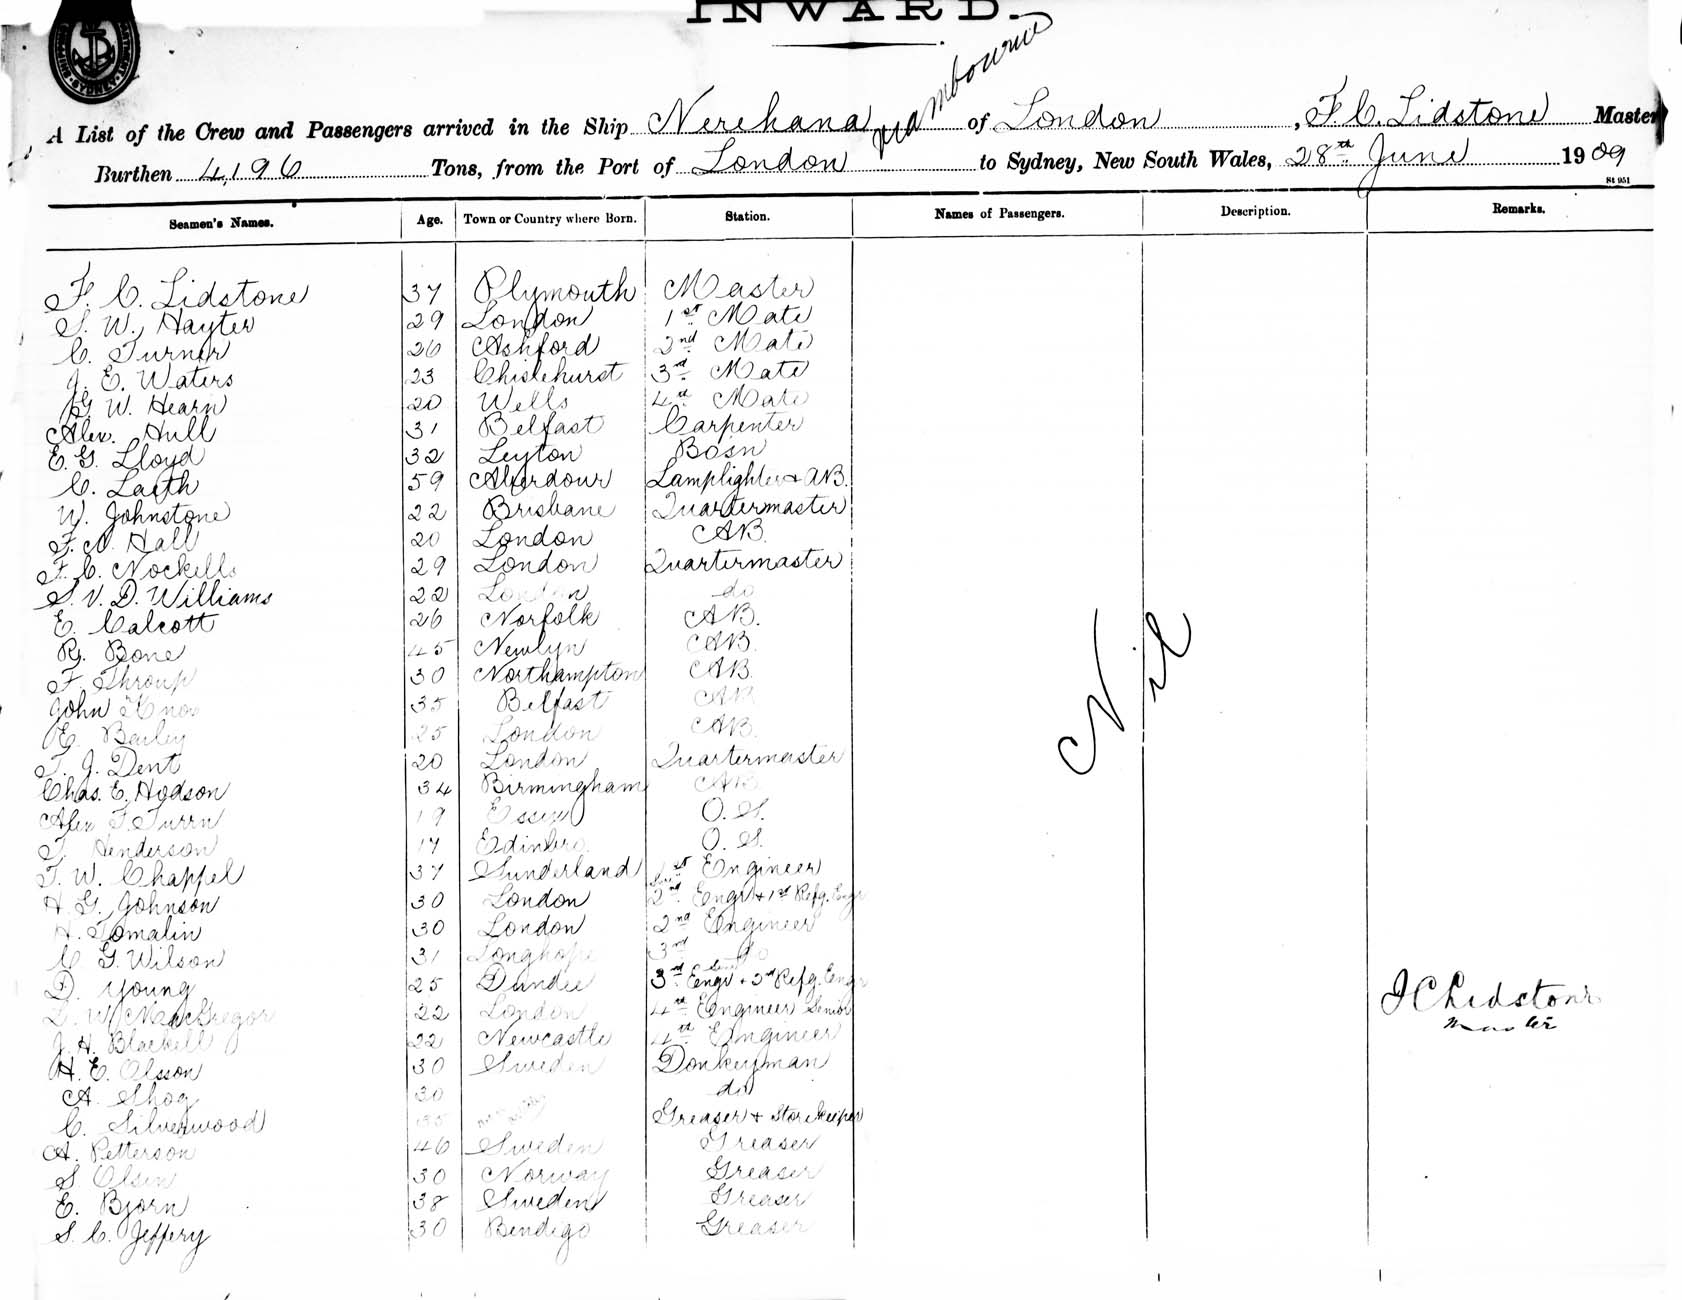 INWARD.
SHIPPING MASTER'S OFFICE SYDNEY
A List of the Crew and Passengers arrived in the Ship Nerehana of London, F. C. Lidstone Master
via Melbourne
Burthen 4,196 Tons, from the Port of London to Sydney, New South Wales, 28th June 1909
St 951
Seamen's Names. Age. Town or Country where Born. Station. Names of Passengers. Description. Remarks.
F. C. Lidstone 37 Plymouth Master
S. W. Hayter 29 London 1st Mate
C. Turner 26 Ashford 2nd Mate
J. E. Waters 23 Chislehurst 3rd Mate
G. W. Hearn 20 Wells 4th Mate
Alex. Hull 31 Belfast Carpenter
E. G. Lloyd 32 Leyton Bosn
C. Laith 59 Aberdour Lamplighter & AB.
W. Johnstone 22 Brisbane Quartermaster
F. A. Hall 20 London AB.
F. C. Nockells 29 London Quartermaster
S. V. D. Williams 22 London do
E. Calcott 26 Norfolk AB.
R. Bone 45 Newlyn AB.
F. Throup 30 Northampton AB.
John Knox 35 Belfast AB
E. Bailey 25 London AB.
T. J. Dent 20 London Quartermaster
Chas. E. Hodson 34 Birmingham AB
Alex F. Turrn 19 Essex O. S.
T. Henderson 17 Edinbro. O. S.
T. W. Chappel 37 Sunderland 1st Engineer
H. G. Johnson 30 London 2nd Engr & 1st Refg. Engr
H. Tomalin 30 London 2nd Engineer
C. G. Wilson 31 Longhope 3rd do
D. Young 25 Dundee 3rd Engr & 3rd Refg. Engr
D. W. MacGregor 22 London 4th Engineer Senior
J. H. Blackell 22 Newcastle 4th Engineer
H. E. Olsson 30 Sweden Donkeyman
A. Skog 30 do
C. Silverwood 35 Greaser & Storekeeper
A. Petterson 46 Sweden Greaser
S. Olsen 30 Norway Greaser
E. Bjorn 38 Sweden Greaser
S. C. Jeffery 30 Bendigo Greaser
Nil
F C Lidstone
Master